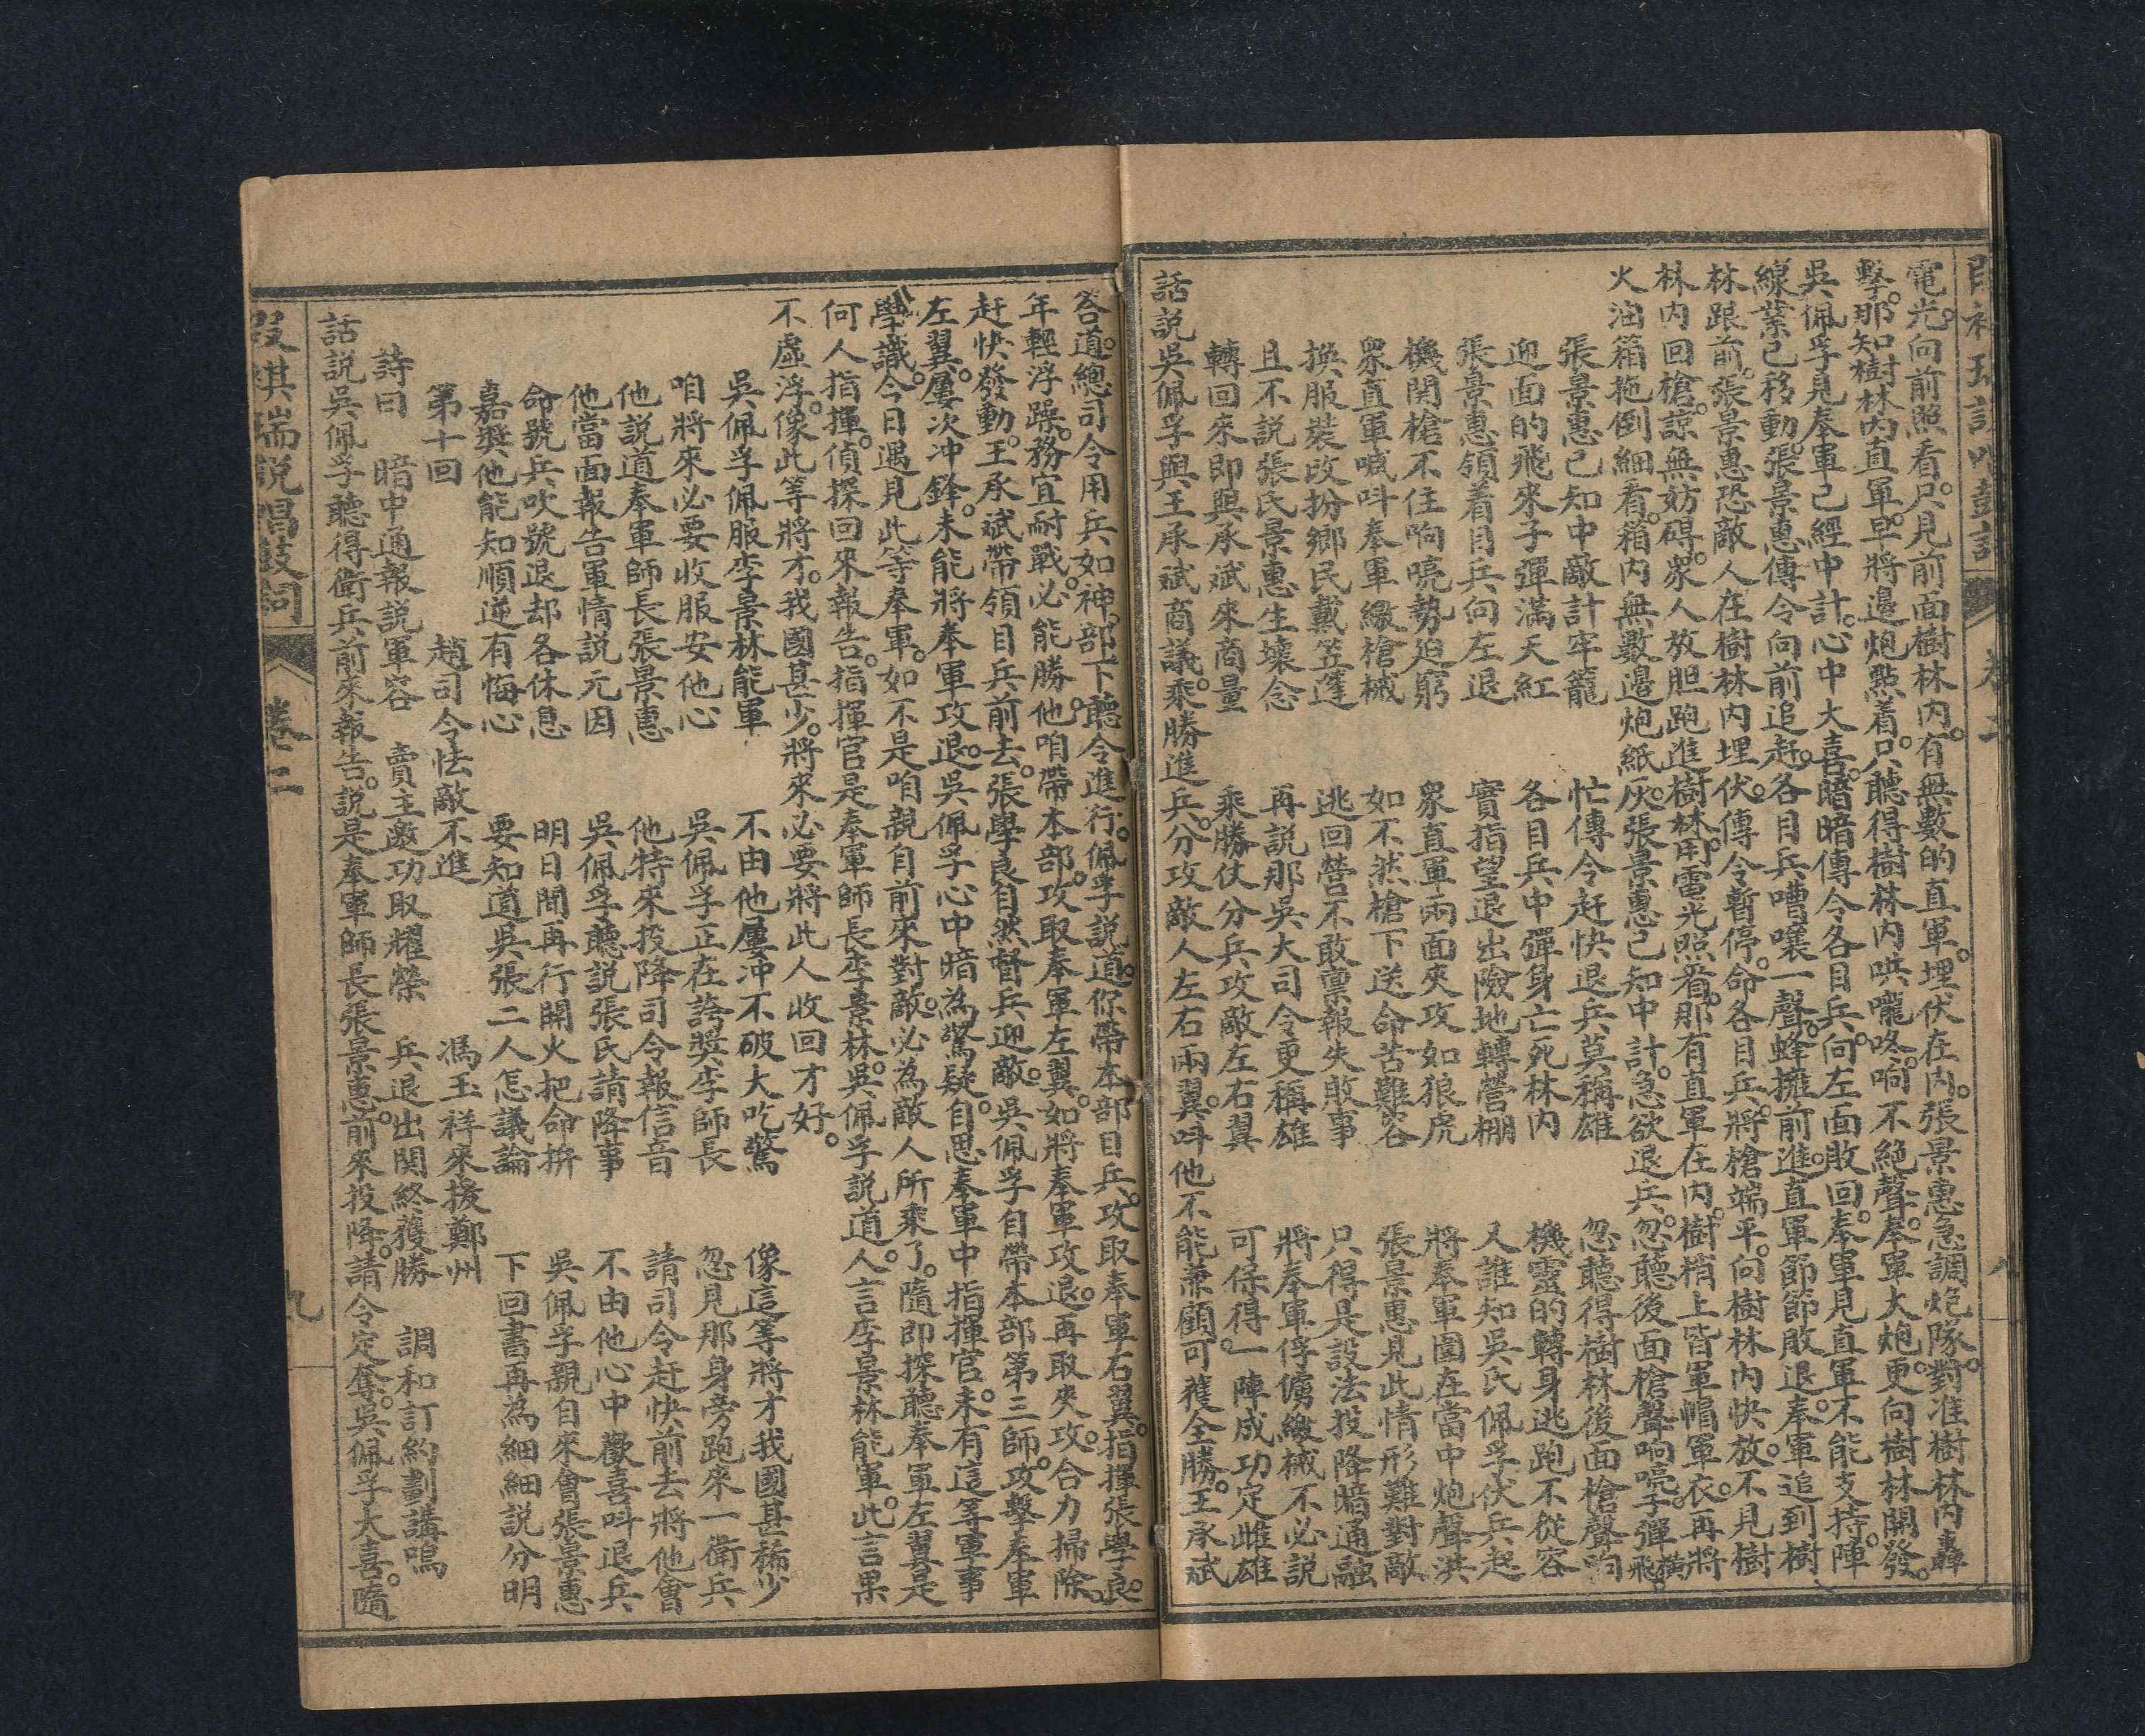 電光。向前照看。只見前面樹林內。有無數的直軍。埋伏在內。張景惠急調炮隊。對准樹林內轟
擊。那知樹林內直軍。早將邊炮點着。只聽得樹林內哄嚨咚。响不絕聲。奉軍大炮。更向樹林開發。
吳佩孚見奉軍已經中計。心中大喜。暗暗傳令各目兵。向左面敗回。奉軍見直軍不能支持。陣
線業已移動。張景惠傳令向前追赶。各目兵嘈嚷一聲。蜂擁前進。直軍節節敗退。奉軍追到樹
林跟前。張景惠恐敵人在樹林內埋伏。傳令暫停。命各目兵。將槍端平。向樹林內快放。不見樹
林內回槍。諒無妨碍。眾人放胆跑進樹林。用電光照着。那有直軍在內。樹梢上皆軍帽軍衣。再將
火油箱拖倒細看。箱內無數邊炮紙灰。張景惠已知中計。急欲退兵。忽聽後面槍聲响喨。子彈橫飛。
張景惠已知中敵計牢籠　忙傳令赶快退兵莫稱雄　忽聽得樹林後面槍聲响
迎面的飛來子彈滿天紅　各目兵中彈身亡死林內　機靈的轉身逃跑不從容
張景惠領着目兵向左退　實指望退出險地轉營棚　又誰知吳氏佩孚伏兵起
機関槍不住响喨勢迫窮　眾直軍兩面夾攻如狼虎　將奉軍圍在當中炮聲洪
眾直軍喊呌奉軍繳槍械　如不然槍下送命苦難容　張景惠見此情形難對敵
換服裝改扮鄉民戴笠篷　逃回營不敢禀報失敗事　只得是設法投降暗通融
且不説張氏景惠生壞念　再説那吳大司令更稱雄　將奉軍俘虜繳械不必説
轉回來即與承斌來商量　乘勝仗分兵攻敵左右翼　可保得一陣成功定雌雄
話説吳佩孚與王承斌商議。乘勝進兵。分攻敵人左右兩翼。呌他不能兼顧。可獲全勝。王承斌
卷二
八
答道。總司令用兵如神。部下聽令進行。佩孚説道。你帶本部目兵。攻取奉軍右翼。指揮張學良。
年輕浮躁。務宜耐戰。必能勝他。咱帶本部。攻取奉軍左翼。如將奉軍攻退。再取夾攻。合力掃除。
赶快發動。王承斌帶領目兵前去。張學良自然督兵迎敵。吳佩孚自帶本部第三師。攻擊奉軍
左翼。屢次冲鋒。未能將奉軍攻退。吳佩孚心中暗為驚疑。自思奉軍中指揮官。未有這等軍事
學識。今日遇見此等奉軍。如不是咱親自前來對敵。必為敵人所乘了。隨即探聽奉軍左翼是
何人指揮。偵探回來報告。指揮官是奉軍師長李景林。吳佩孚説道。人言李景林能軍。此言果
不虛浮。像此等將才。我國甚少。將來必要將此人收回才好。
吳佩孚佩服李景林能軍　不由他屢冲不破大吃驚　像這等將才我國甚稀少
咱將來必要收服安他心　吳佩孚正在誇獎李師長　忽見那身旁跑來一衛兵
他説道奉軍師長張景惠　他特來投降司令報信音　請司令赶快前去將他會
他當面報告軍情説元因　吳佩孚聽説張氏請降事　不由他心中歡喜呌退兵
命號兵吹號退却各休息　明日間再行開火把命拚　吳佩孚親自來會張景惠
嘉獎他能知順逆有悔心　要知道吳張二人怎議論　下回書再為細細説分明
第十回　趙司令怯敵不進　馮玉祥來援鄭州
詩曰　暗中通報説軍容　賣主邀功取耀榮　兵退出関終獲勝　調和訂約劃講鳴
話説吳佩孚聽得衛兵前來報告。説是奉軍師長張景惠。前來投降。請令定奪。吳佩孚大喜。隨
段祺瑞説唱鼓詞
卷二
九